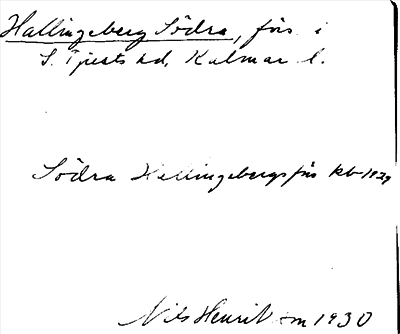 Hallingeberg Södra, förs. i
S. Tjusts hd, Kalmar l.
Södra Hallingebergs förs kb 1929
Nils Henrik-m 1930